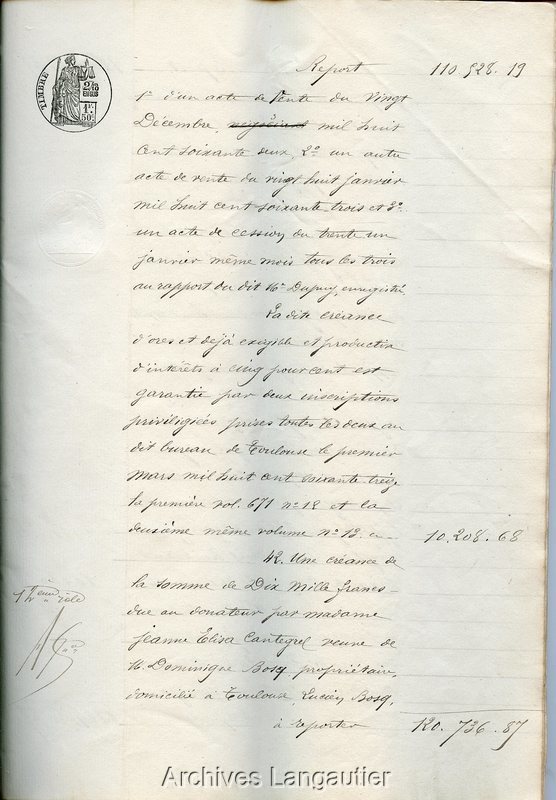 TIMBRE
2/10 EN SUS
1F. 50c.
Report 110.528.19
1º d'un acte de Vente du Vingt
Décembre, negociant mil huit
cent soixante deux, 2º un autre
acte de vente du vingt huit janvier
mil huit cent soixante trois et 3º
un acte de cession du trente un
janvier même mois tous les trois
au rapport du dit Me Dupuy, enregistré
La dite créance
d'ores et déjà exigible et productive
d'intérêts à cinq pour cent est
garantie par deux inscriptions
priviligiées prises toutes les deux au
dit bureau de Toulouse le premier
Mars mil huit cent soixante treize
la première vol. 671 nº 12 et la
deuxième même volume nº 13. 10.208.68
42. Une créance de
la somme de Dix Mille francs
due au donateur par madame
Jeanne Elisa Cantegrel veuve de
M. Dominique Bosq propriétaire,
domiciliée à Toulouse, Lucien Bosq,
à reporter 120.736.87
rôle
Archives Langautier